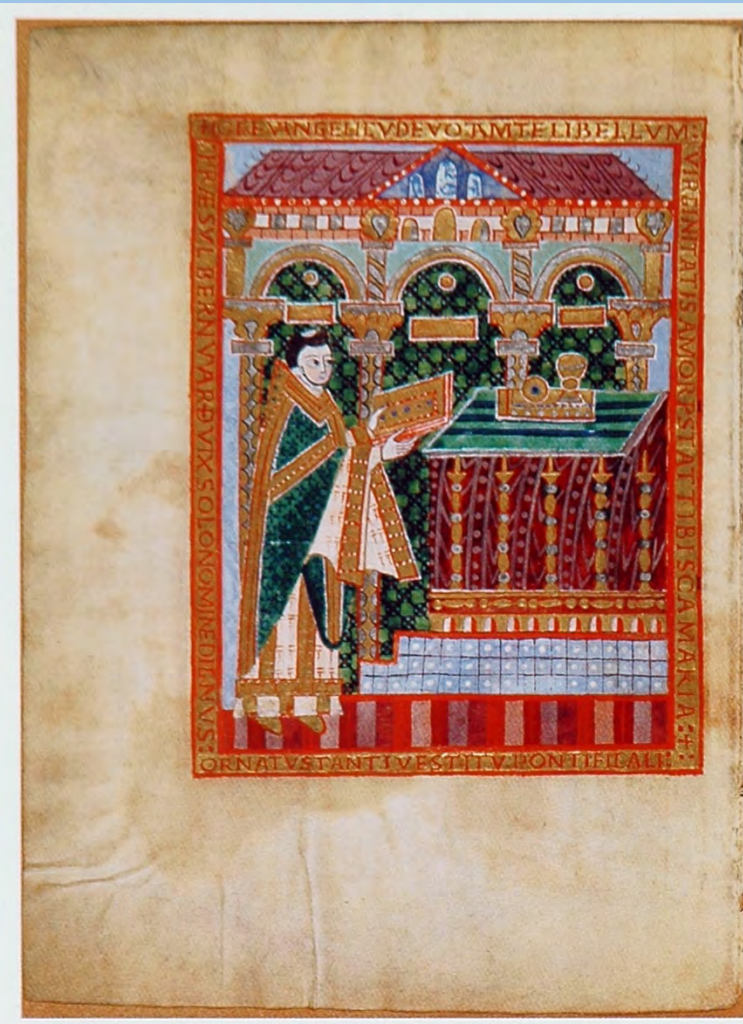 HOC EVANGELICV DEVOTA MTE LIBELLVM:
VIRGINITATIS AMOR PSTAT TIBI SCA MARIA:+
PRAESVL BERNVVARD VIX SOLO NOMINE DIGNVS:
ORNATVS TANTI VESTITV PONTIFICALI: